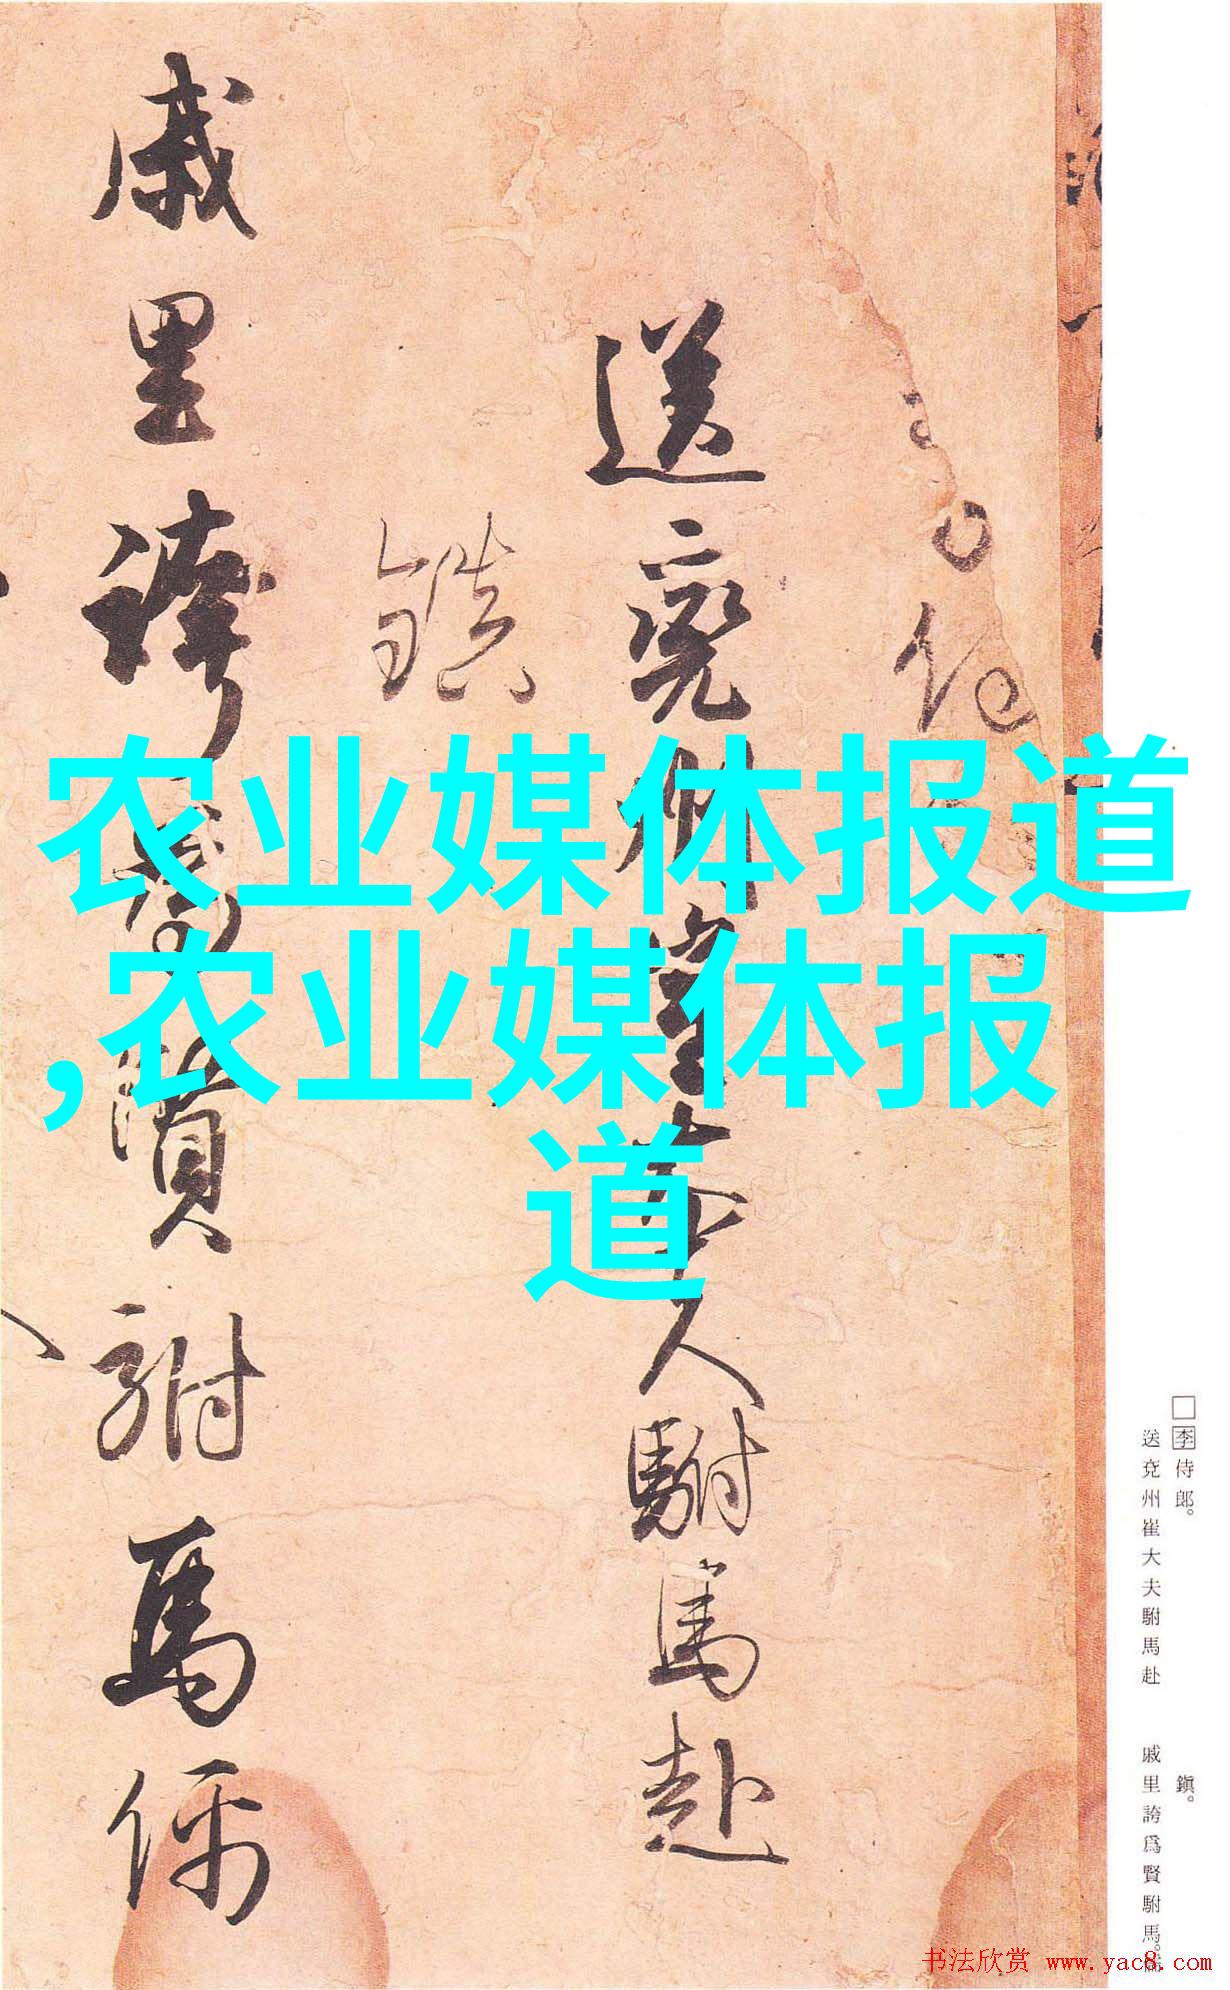 送兖州崔大夫駙馬赴
鎮
戚里誇爲賢駙馬儒
农业媒体报道
,农业媒体报
道
□李侍郎。
送兖州崔大夫駙馬赴
鎭。
戚里誇爲賢駙馬。儒
书法欣赏 www.yac8.com